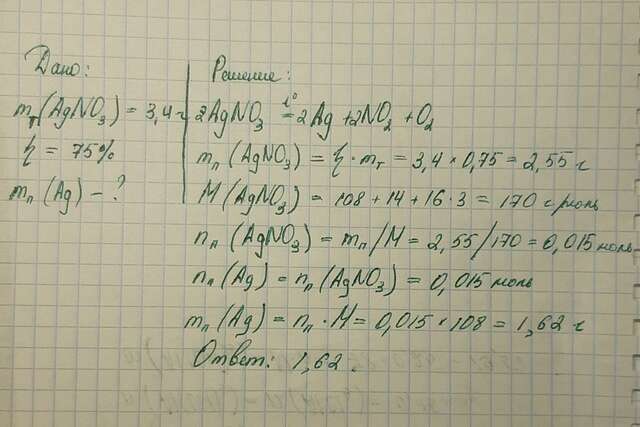 Дано:
m_т(AgNO₃) = 3,4 г
η = 75%
m_п(Ag) - ?
Решение:
2AgNO₃ t°= 2Ag + 2NO₂ + O₂
m_п(AgNO₃) = η · m_т = 3,4 × 0,75 = 2,55 г
M(AgNO₃) = 108 + 14 + 16 · 3 = 170 г/моль
n_п(AgNO₃) = m_п/M = 2,55/170 = 0,015 моль
n_п(Ag) = n_п(AgNO₃) = 0,015 моль
m_п(Ag) = n_п · M = 0,015 × 108 = 1,62 г
Ответ: 1,62.